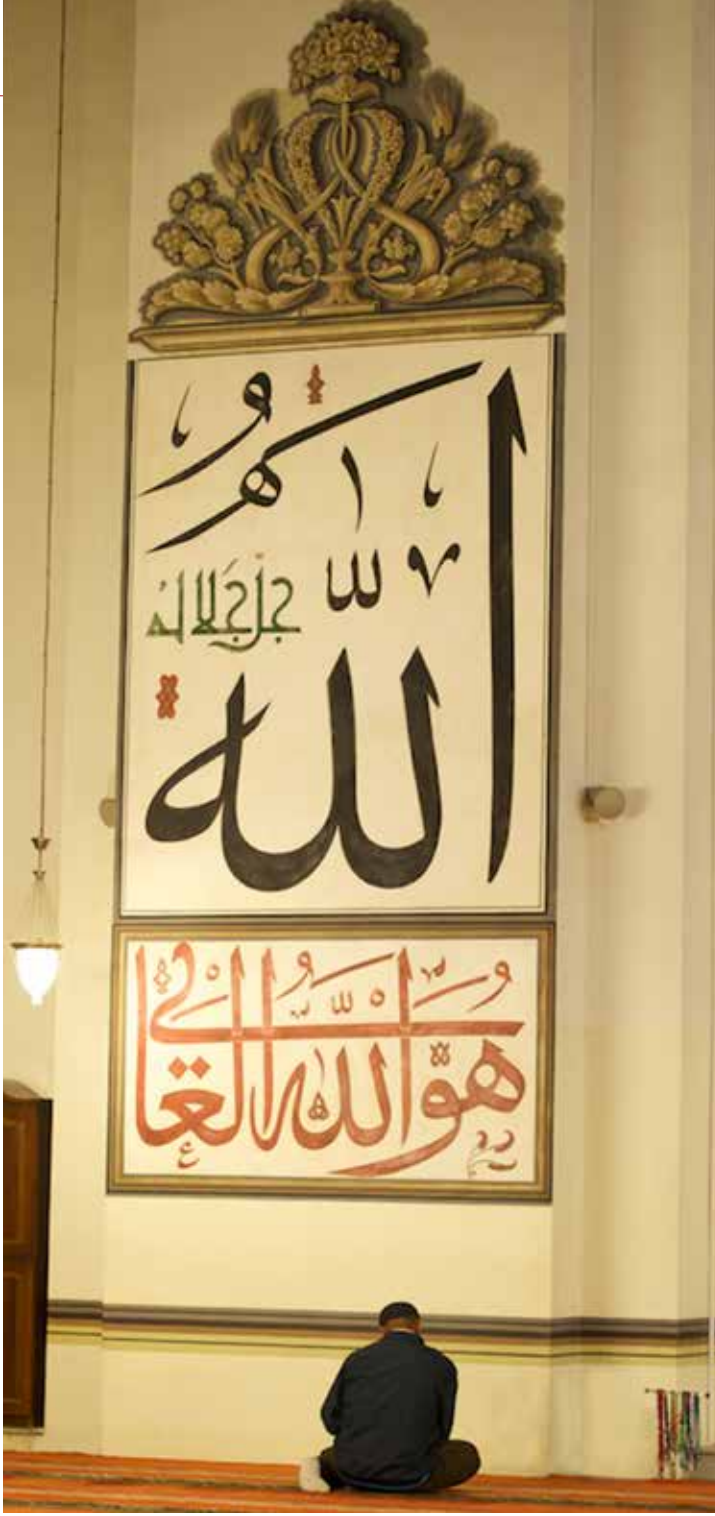 الله
جَلَّ جَلَالُهُ
هُوَ اللهُ العَالِي